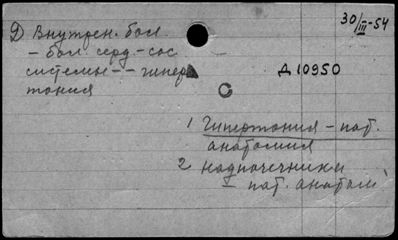 Д) Внутрен. бол.
– бол. серд.-сос
системы – – гипер
тония
30/III-54
Д 10950
1 Гипертония – пат.
анатомия
2 надпочечники
– пат. анатом